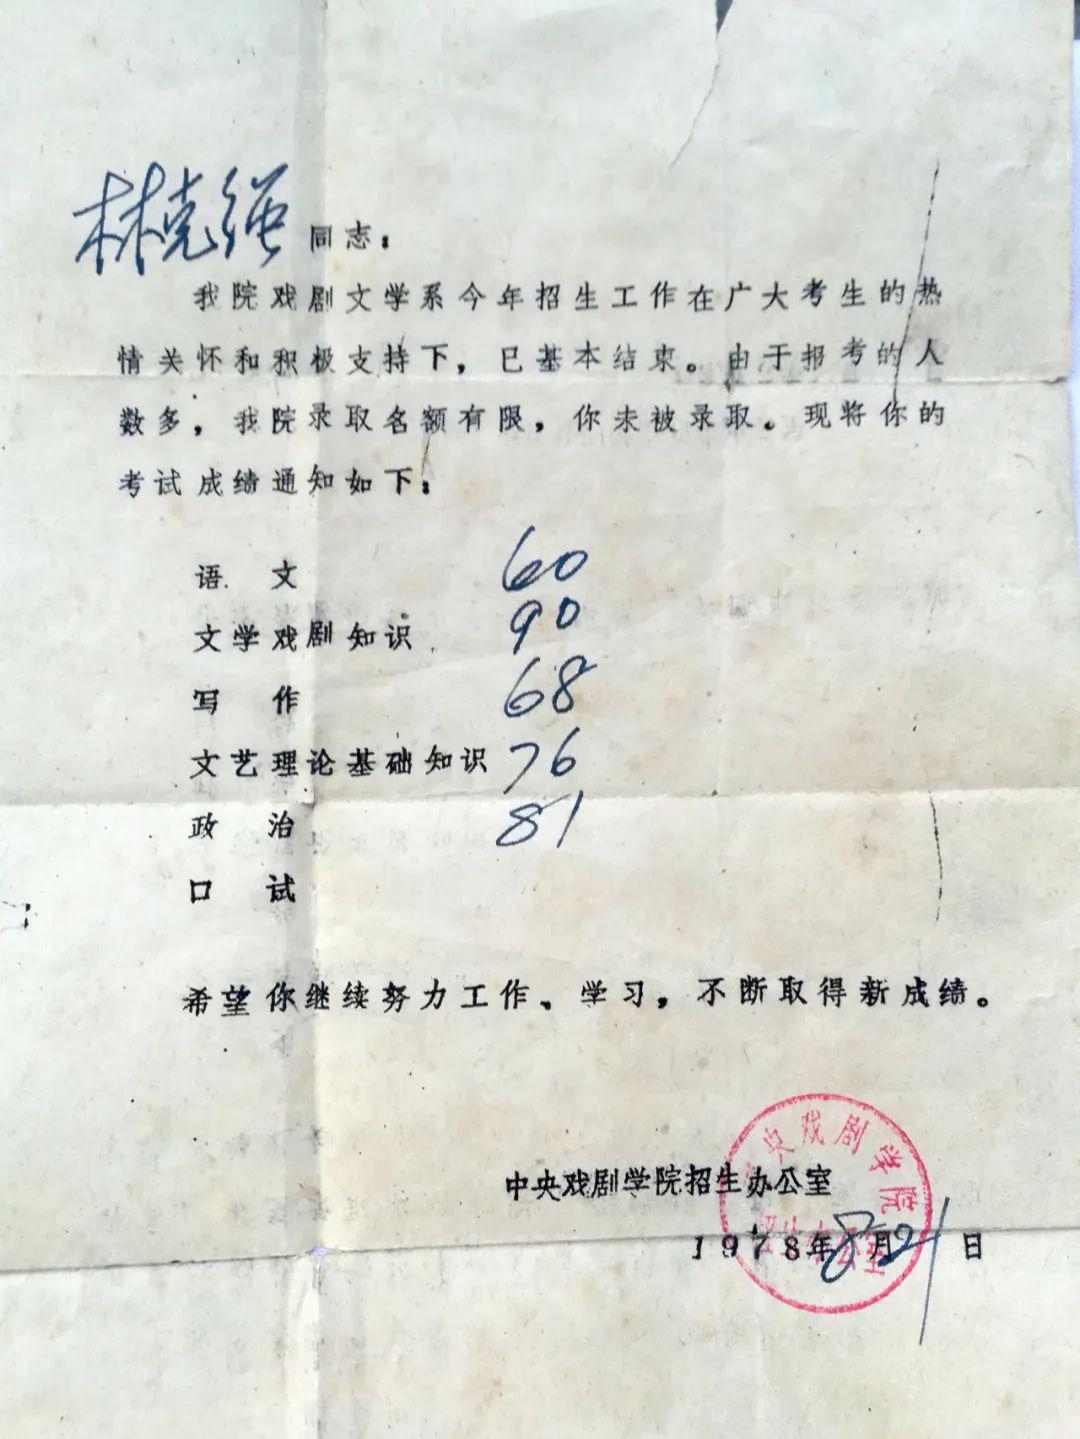 林克强同志：
我院戏剧文学系今年招生工作在广大考生的热
情关怀和积极支持下，已基本结束。由于报考的人
数多，我院录取名额有限，你未被录取。现将你的
考试成绩通知如下：
语 文 60
文学戏剧知识 90
写 作 68
文艺理论基础知识 76
政 治 81
口 试
希望你继续努力工作、学习，不断取得新成绩。
中央戏剧学院
招生办公室
中央戏剧学院招生办公室
1978年8月21日